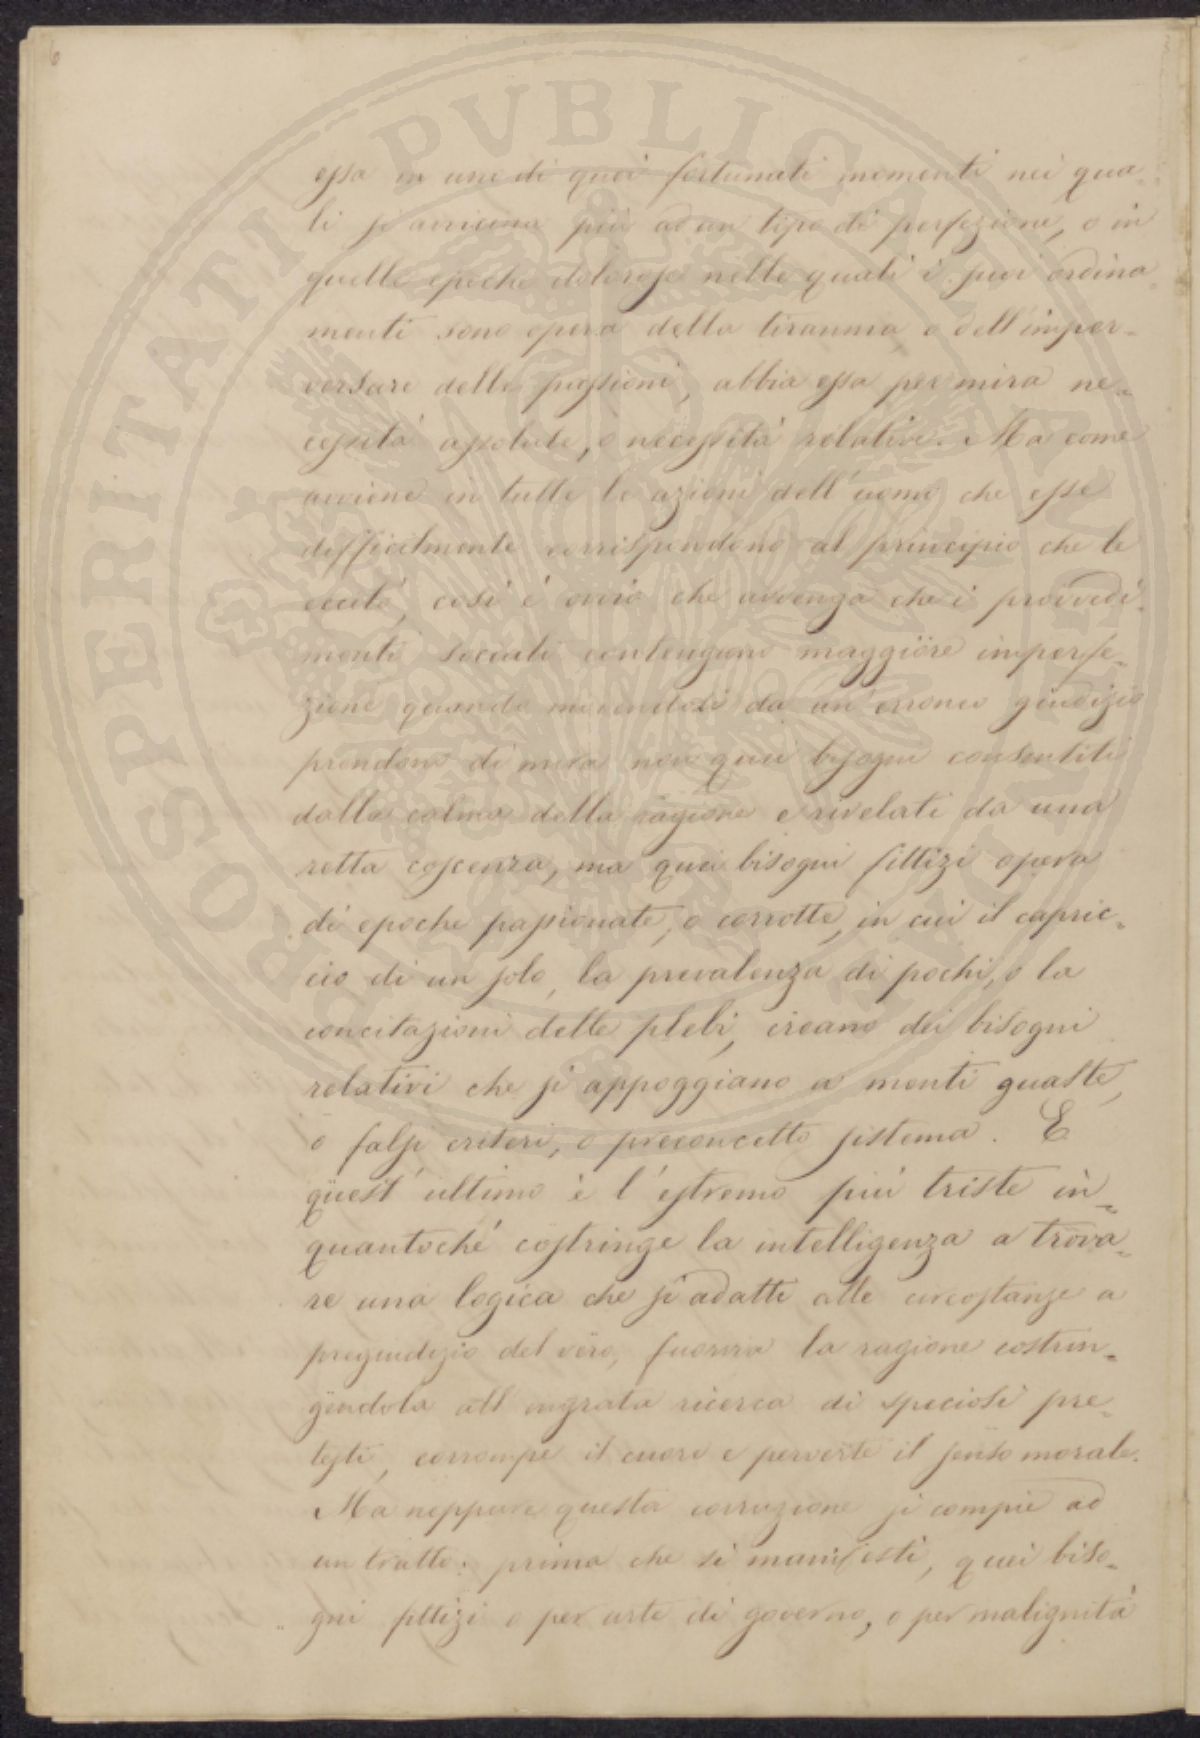 6
essa in uno di quei fortunati momenti nei qua-
li si avvicina più ad un tipo di perfezione, o in
quelle epoche dolorose nelle quali i suoi ordina-
menti sono opera della tirannia o dell'imper-
versare delle passioni, abbia essa per mira ne-
cessità assolute, o necessità relative. Ma come
avviene in tutte le azioni dell'uomo che esse
difficilmente corrispondono al principio che le
eccitò, così è ovvio che avvenga che i provvedi-
menti sociali contengano maggiore imperfe-
zione quando movendosi da un'erroneo giudizio
prendono di mira non quei bisogni consentiti
dalla calma della ragione e rivelati da una
retta coscenza, ma quei bisogni fittizi opera
di epoche passionate, o corrotte, in cui il capric-
cio di un solo, la prevalenza di pochi, o la
concitazioni delle plebi, creano dei bisogni
relativi che si appoggiano a menti guaste,
o falsi criteri, o preconcetto sistema. E
quest'ultimo è l'estremo più triste in-
quantoché costringe la intelligenza a trova-
re una logica che si adatti alle circostanze a
pregiudizio del vero, fuorvia la ragione costrin-
gendola all'ingrata ricerca di speciosi pre-
testi, corrompe il cuore e perverte il senso morale.
Ma neppure questa corruzione si compie ad
un tratto: prima che si manifesti, quei biso-
gni fittizi o per arte di governo, o per malignità
PROSPERITATI PVBLICAE AVGENDAE